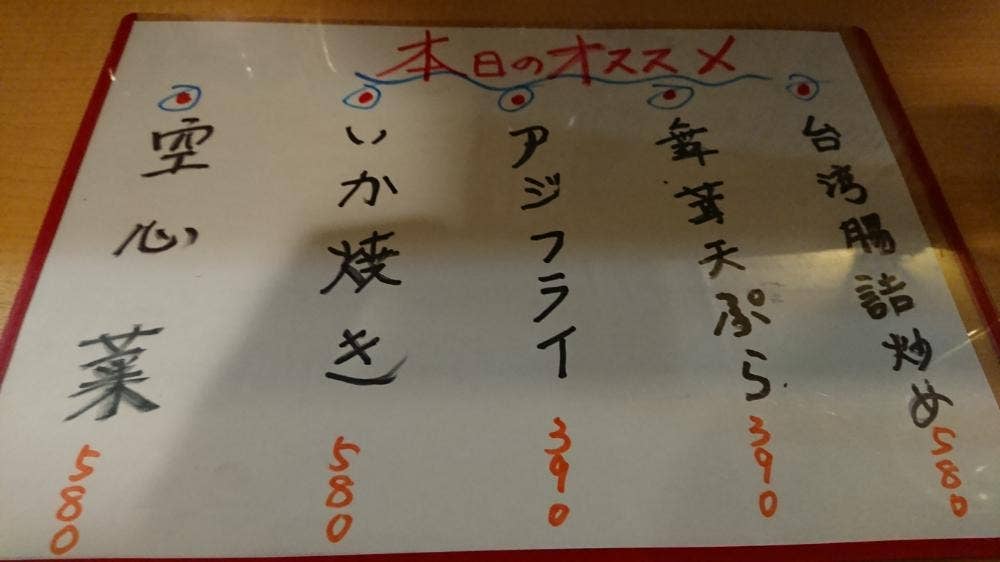 本日のオススメ
台湾腸詰炒め
580
舞茸天ぷら
390
アジフライ
390
いか焼き
580
空心菜
580